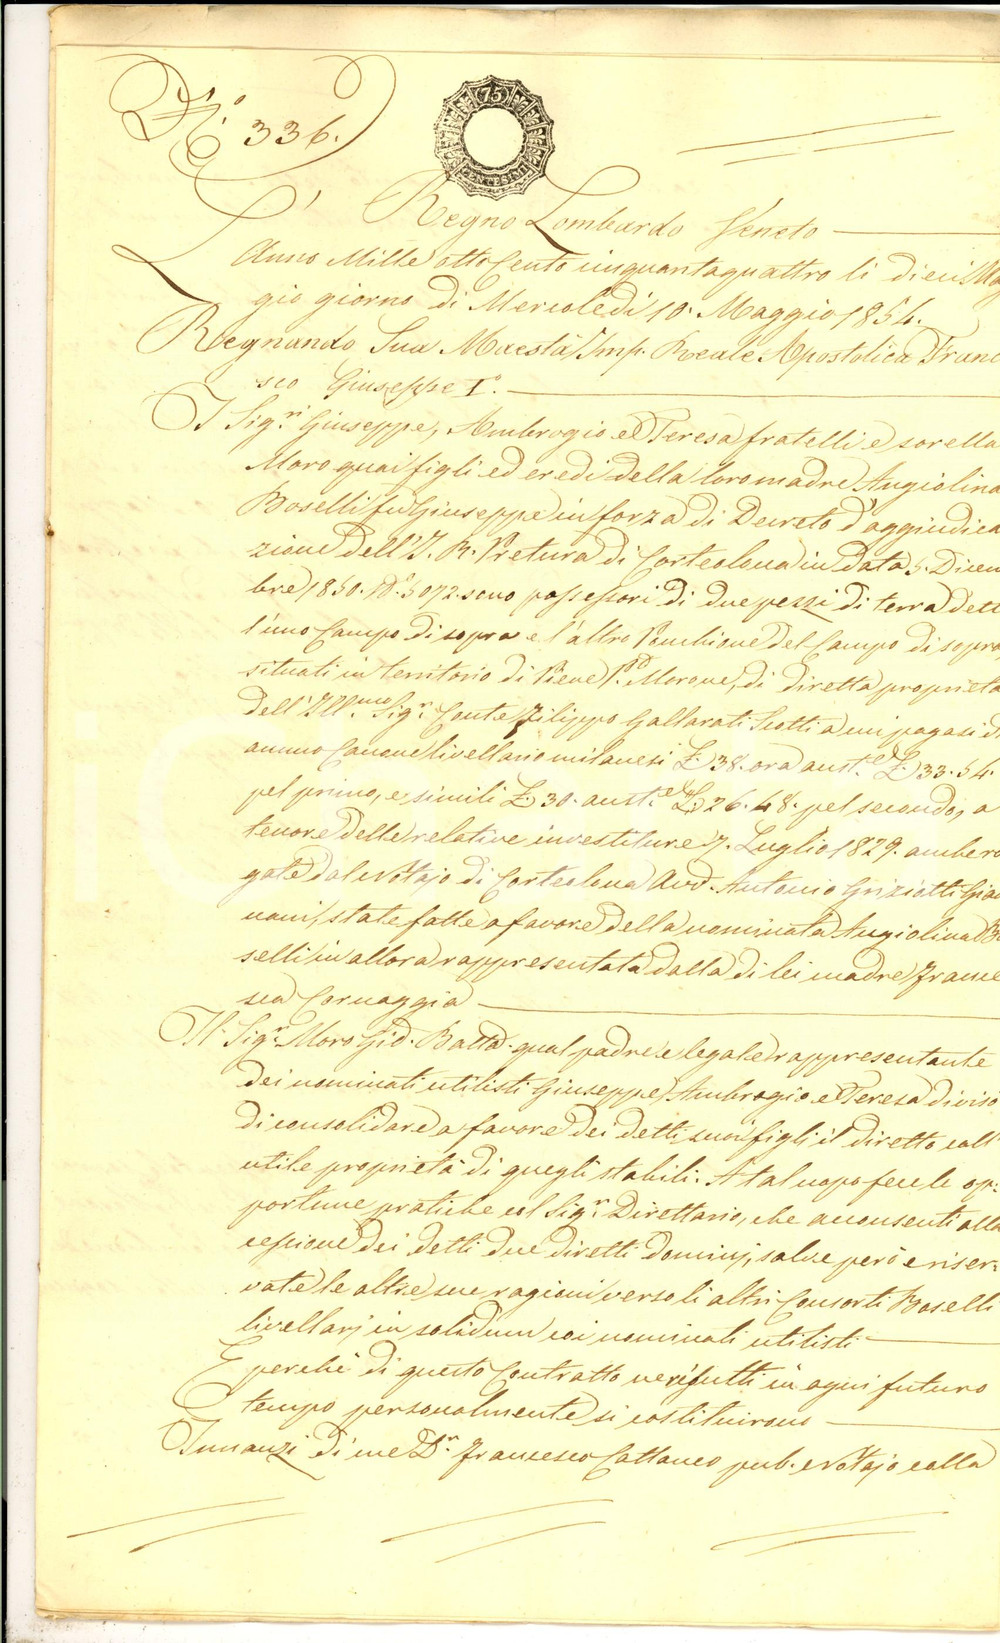 N.° 336.
75
CENTESIMI
Regno Lombardo Veneto
L'Anno Mille otto Cento cinquantaquattro li dieci Mag
gio giorno di Mercoledì 10. Maggio 1854.
Regnando Sua Maestà Imp. Reale Apostolica Franc
sco Giuseppe I.°
I Sig.ri Giuseppe, Ambrogio e Teresa fratelli e sorella
Moro quai figli ed eredi della loro madre Angiolina
Boselli fu Giuseppe in forza di Decreto d'aggiudica
zione dell'I. R. Pretura di Corteolona in data 5. Dicem
bre 1850. N.° 5072. sono possessori di due pezzi di terra detti
l'uno Campo di sopra e l'altro Ronchione del Campo di sopra
situati in territorio di Pieve P.to Morone, di diretta proprietà
dell'Ill.mo Sig.r Conte Filippo Gallarati Scotti a cui pagasi d.
annuo Canone livellario milanesi £. 38. ora aust.e £. 33. 54.
pel primo, e simili £. 30. aust.e £. 26. 48. pel secondo, a
tenore delle relative investiture 7. Luglio 1829. ambe ro
gate dal Notajo di Corteolona Avv. Antonio Griziotti Gian
nani, state fatte a favore della nominata Angiolina Bo
selli in allora rappresentata dalla di lei madre France
sca Cornaggia
Il Sig.r Moro Gio. Batta. qual padre e legale rappresentante
dei nominati utilisti Giuseppe, Ambrogio e Teresa divisò
di consolidare a favore dei detti suoi figli il diretto coll'
utile proprietà di quegli stabili. A tal uopo fece le op:
portune pratiche col Sig.r Direttario, che acconsentì alla
cessione dei detti due diretti Dominj, salve però e riser:
vate le altre sue ragioni verso li altri Consorti Boselli
livellarj in solidum coi nominati utilisti
E perchè di questo Contratto ne risulti in ogni futuro
tempo personalmente si costituirono
Innanzi di me D.r Francesco Cattaneo pub. Notajo colla